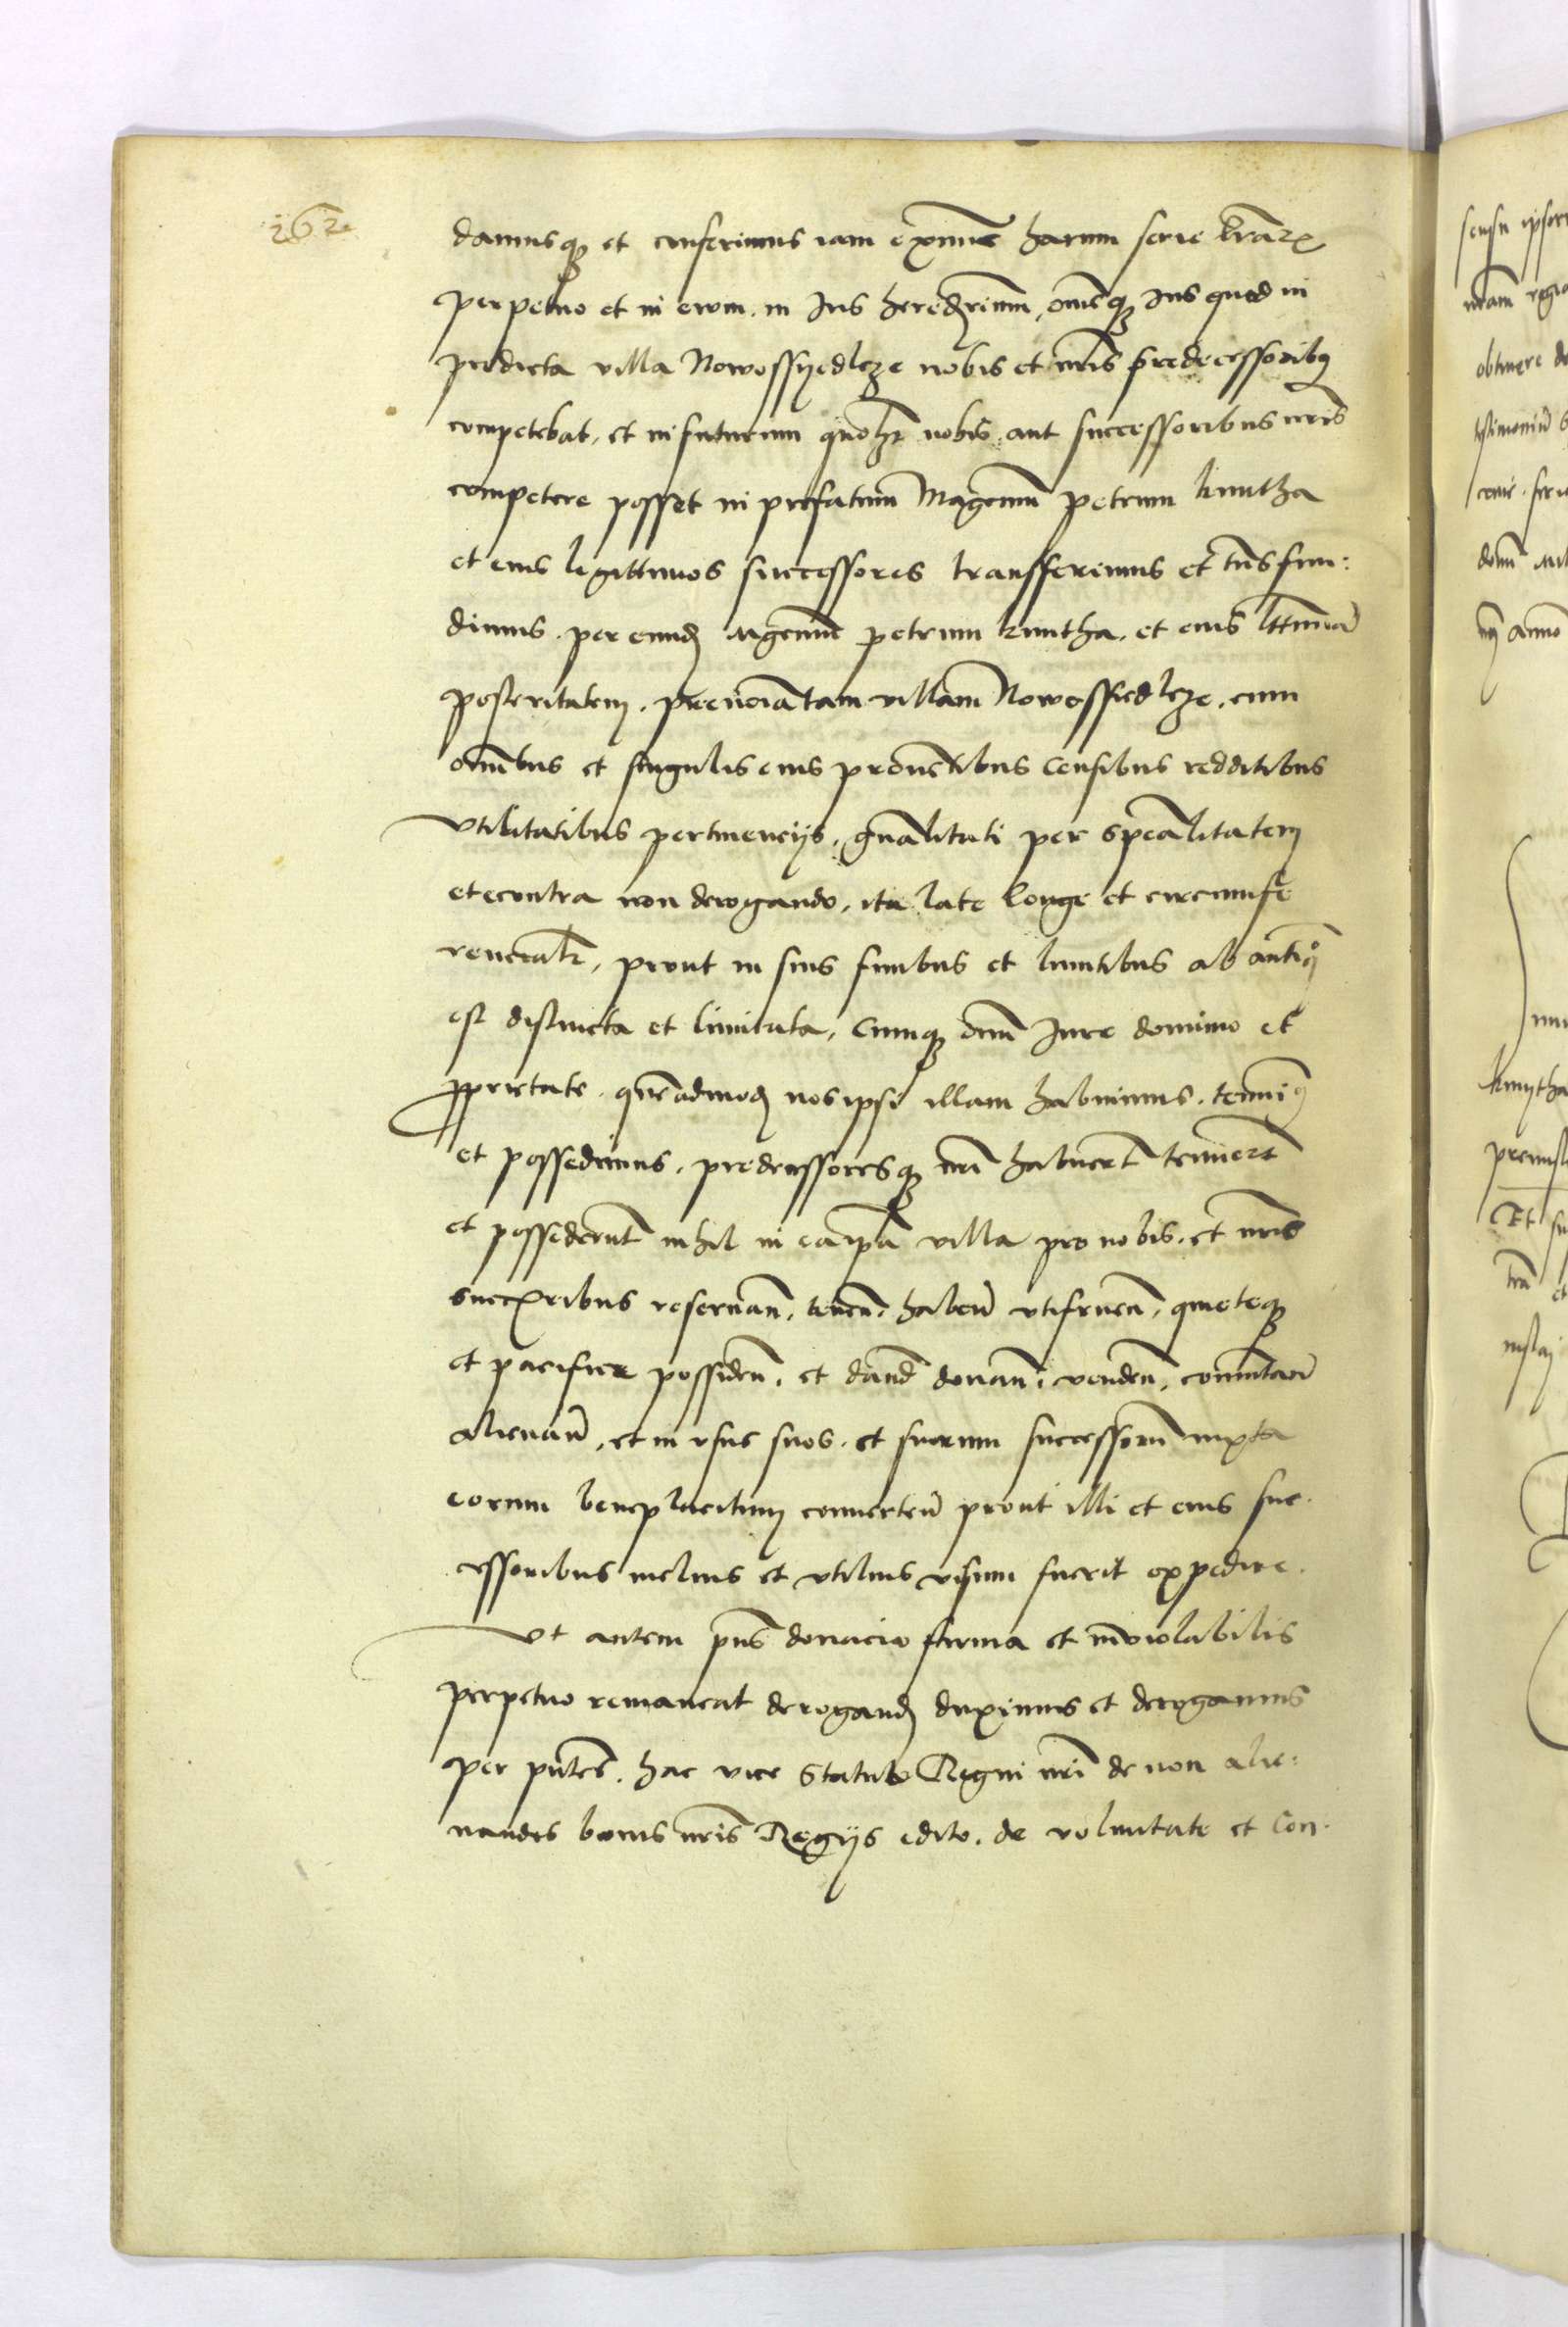 262
damusq3 et conferimus iam exnunc harum serie lrãrꝝ
perpetuo et in evum. in Ius hereditarium, omneq3 ius quod in
predicta villa Nowossyedlcze nobis et nris predecessorib9
competebat, et in futurum quolzt nobis aut successoribus nris
competere posset in prefatum Magcum petrum kmitha
et eius legittimos successores transferimus et tnsfun:
dimus. per eundem Magcum petrum kmitha. et eius lttimam
posteritatem. prenoiatam villam Nowossiedlcze, cum
omnibus et singulis eius proventibus Censibus redditibus
vtilitatibus pertinencijs, gnalitati per spealitatem
et econtra non derogando, ita late longe et circumfe
rencialr, prout in suis finibus et limitibus ab antiqo
est distincta et limitata, Cumq3 omi Iure dominio et
pprietate quemadmodum nos ipsi illam habuimus. tenui9
et possedimus. predecessoresq3 nri habuert tenuert
et possederunt nihil in eaipa villa pro nobis. et nris
succoribus reservan. tenen. haben vtifruen, quieteq3
et pacifice possiden. et dand donan. venden, commutan
alienan, et in vsus suos. et suorum successorum iuxta
eorum beneplacitum converten prout illi et eius suc
cessoribus melius et vtilius visum fuerit expedire.
Vt autem pns donacio firma et inviolabilis
perpetuo remaneat derogandum duximus et derogamus
per pntes. hac vice Statuto Regni nri de non alie:
nandis bonis nris Regijs edito. de voluntate et Con